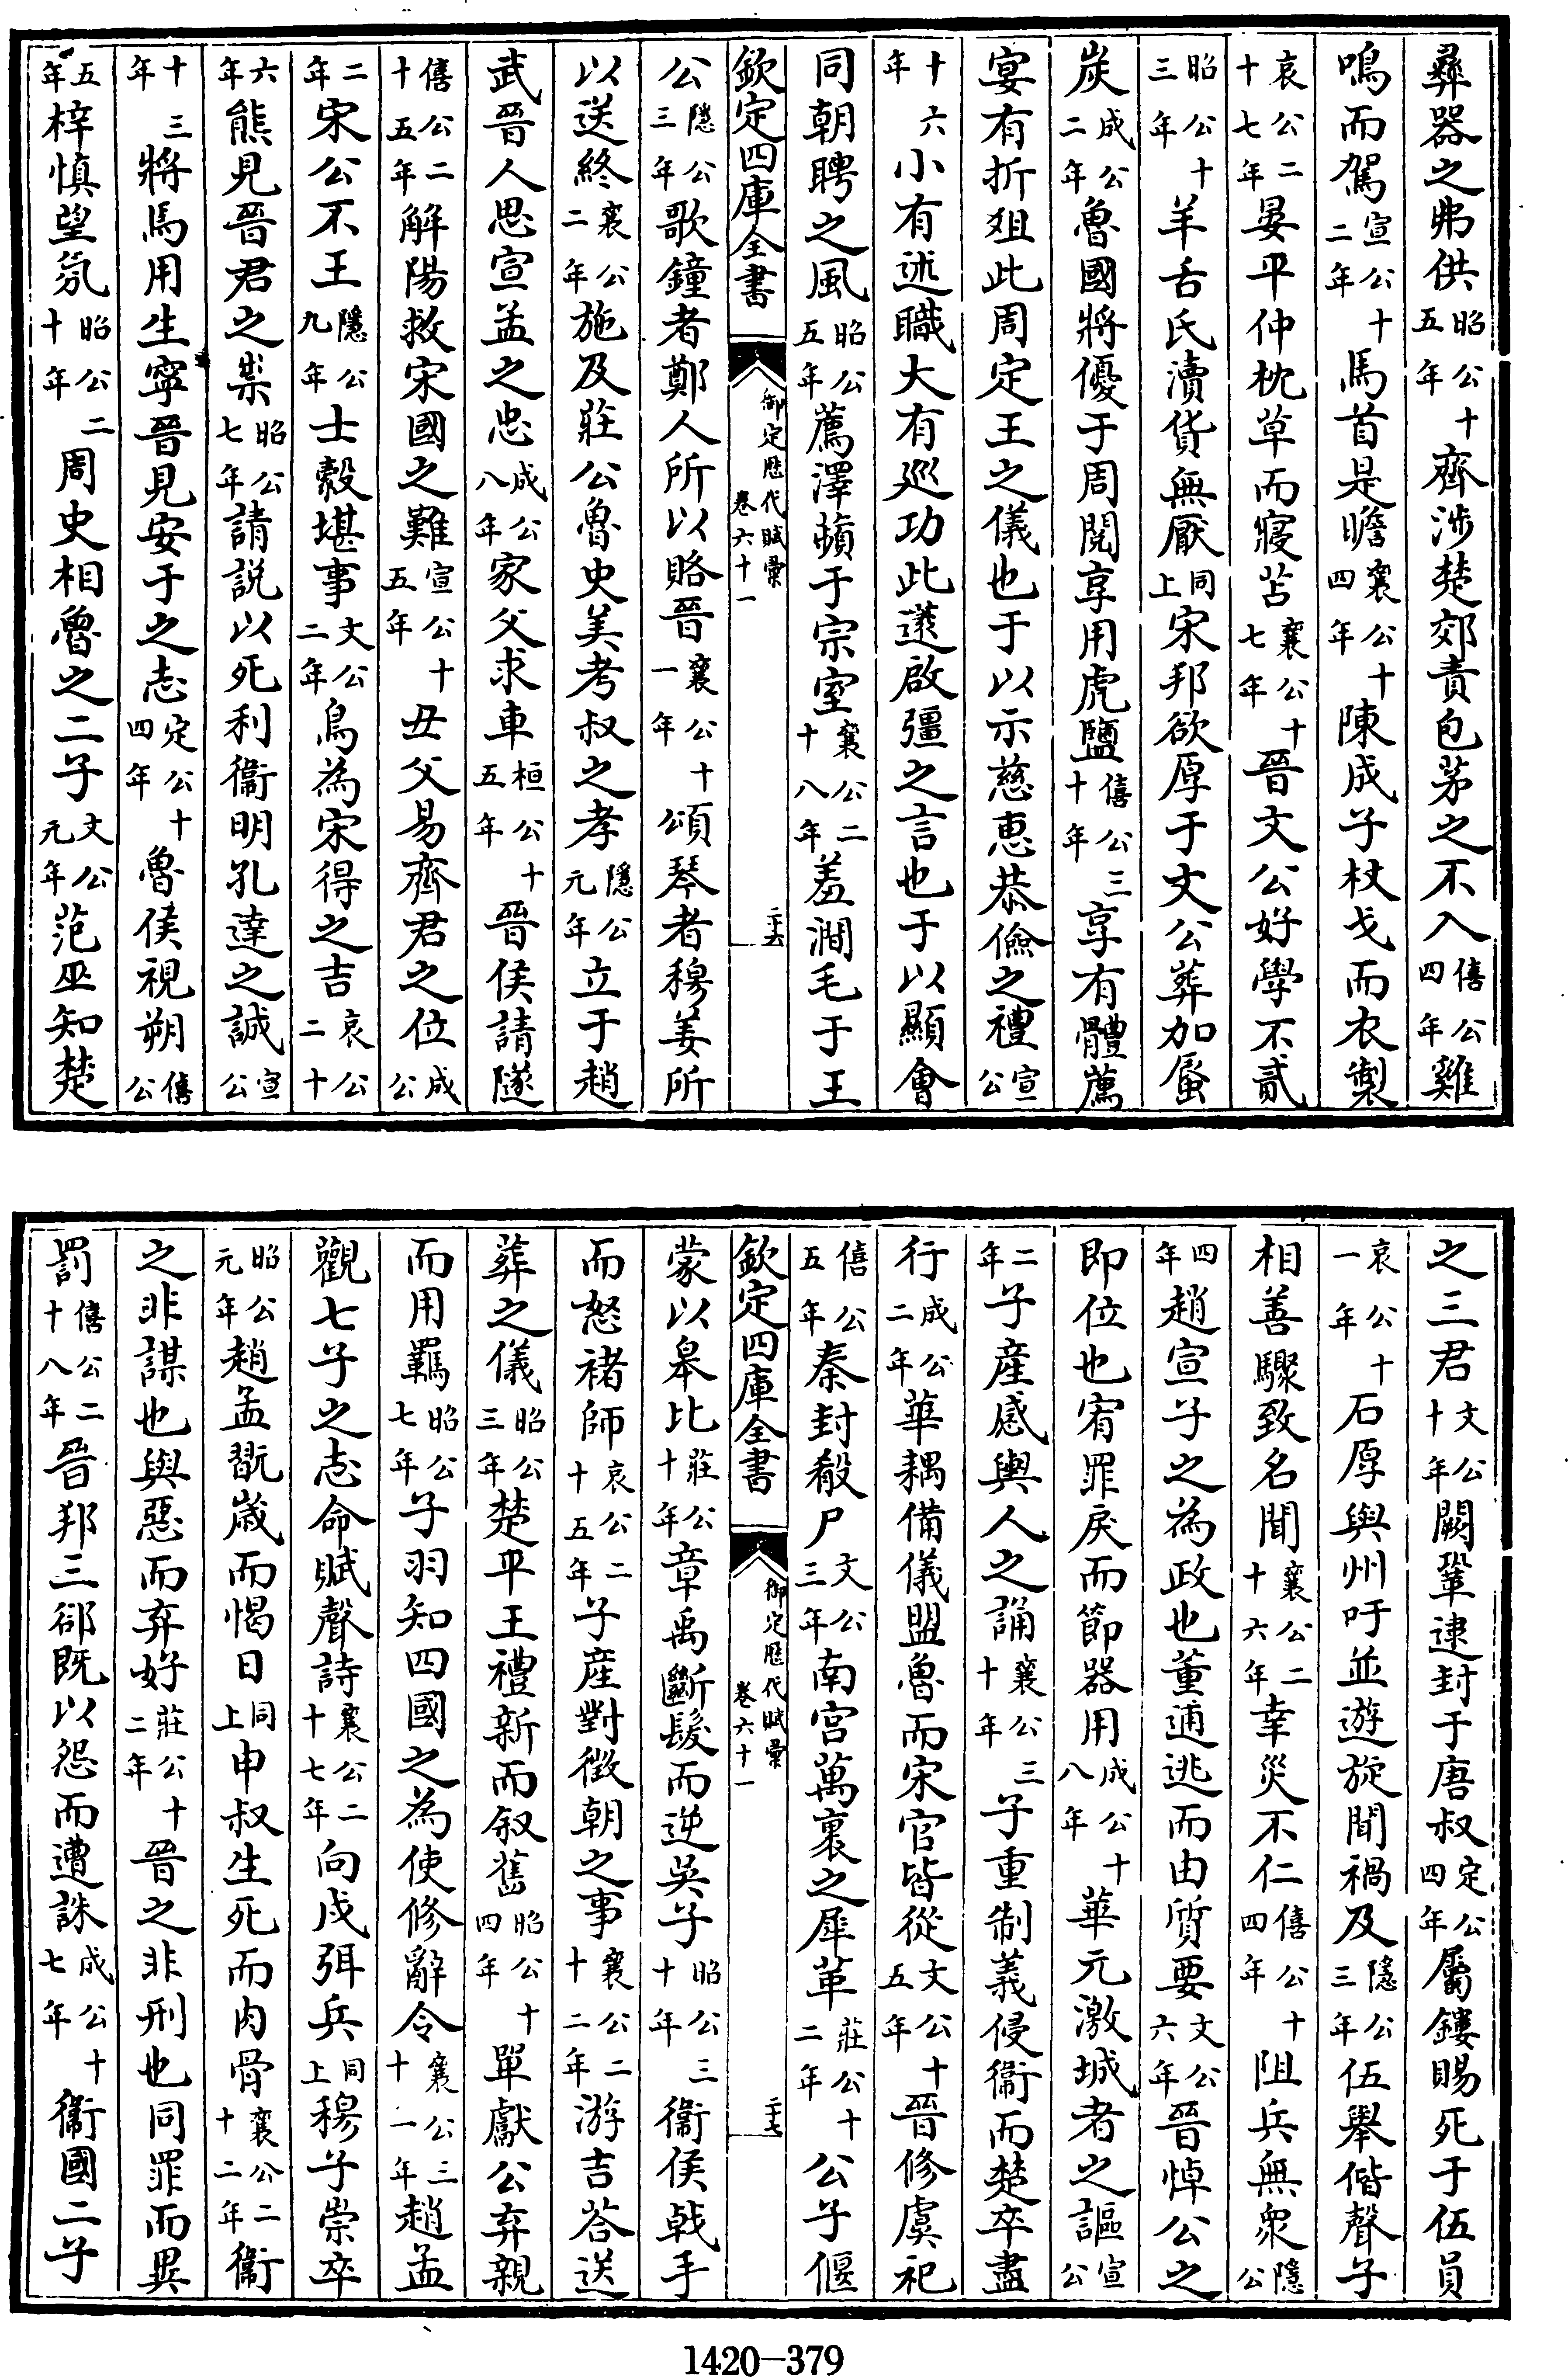 彞器之弗供昭公十五年齊涉楚郊責包茅之不入僖公四年雞
鳴而駕宣公十二年馬首是瞻襄公十四年陳成子杖戈而衣製
哀公二十七年晏平仲枕草而寢苫襄公十七年晉文公好學不貳
昭公十三年羊舌氏瀆貨無厭同上宋邦欲厚于文公葬加蜃
炭成公二年魯國將優于周閱享用虎鹽僖公三十年享有體薦
宴有折俎此周定王之儀也于以示慈惠恭儉之禮宣公
十六年小有述職大有巡功此薳啟彊之言也于以顯會
同朝聘之風昭公五年薦澤蘋于宗室襄公二十八年羞澗毛于王
欽定四庫全書 御定歷代賦彙 卷六十一 二十六
公隱公三年歌鐘者鄭人所以賂晉襄公十一年頌琴者穆姜所
以送終襄公二年施及莊公魯史美考叔之孝隱公元年立于趙
武晉人思宣孟之忠成公八年家父求車桓公十五年晉侯請隧
僖公二十五年解陽救宋國之難宣公十五年丑父易齊君之位成公
二年宋公不王隱公九年士縠堪事文公二年鳥為宋得之吉哀公二十
六年熊見晉君之祟昭公七年請說以死利衞明孔達之誠宣公
十三年將馬用生寧晉見安于之志定公十四年魯侯視朔僖公
五年梓慎望氛昭公二十年周史相魯之二子文公元年范巫知楚
之三君文公十年闕鞏逮封于唐叔定公四年屬鏤賜死于伍員
哀公十一年石厚與州吁並遊旋聞禍及隱公三年伍舉偕聲子
相善驟致名聞襄公二十六年幸災不仁僖公十四年阻兵無衆隱公
四年趙宣子之為政也董逋逃而由質要文公六年晉悼公之
即位也宥罪戾而節器用成公十八年華元激城者之謳宣公
二年子產感輿人之誦襄公三十年子重制義侵衞而楚卒盡
行成公二年華耦備儀盟魯而宋官皆從文公十五年晉修虞祀
僖公五年秦封殽尸文公三年南宫萬裹之犀革莊公十二年公子偃
欽定四庫全書 御定歷代賦彙 卷六十一 二十七
蒙以皋比莊公十年章禹斷髮而逆吳子昭公三十年衞侯戟手
而怒褚師哀公二十五年子產對徵朝之事襄公二十二年游吉荅送
葬之儀昭公三年楚平王禮新而叙舊昭公十四年單獻公弃親
而用羈昭公七年子羽知四國之為使修辭令襄公三十一年趙孟
觀七子之志命賦聲詩襄公二十七年向戌弭兵同上穆子崇卒
昭公元年趙孟翫歲而愒日同上申叔生死而肉骨襄公二十二年衞
之非謀也與惡而弃好莊公十二年晉之非刑也同罪而異
罰僖公二十八年晉邦三郤既以怨而遭誅成公十七年衞國二子
1420-379